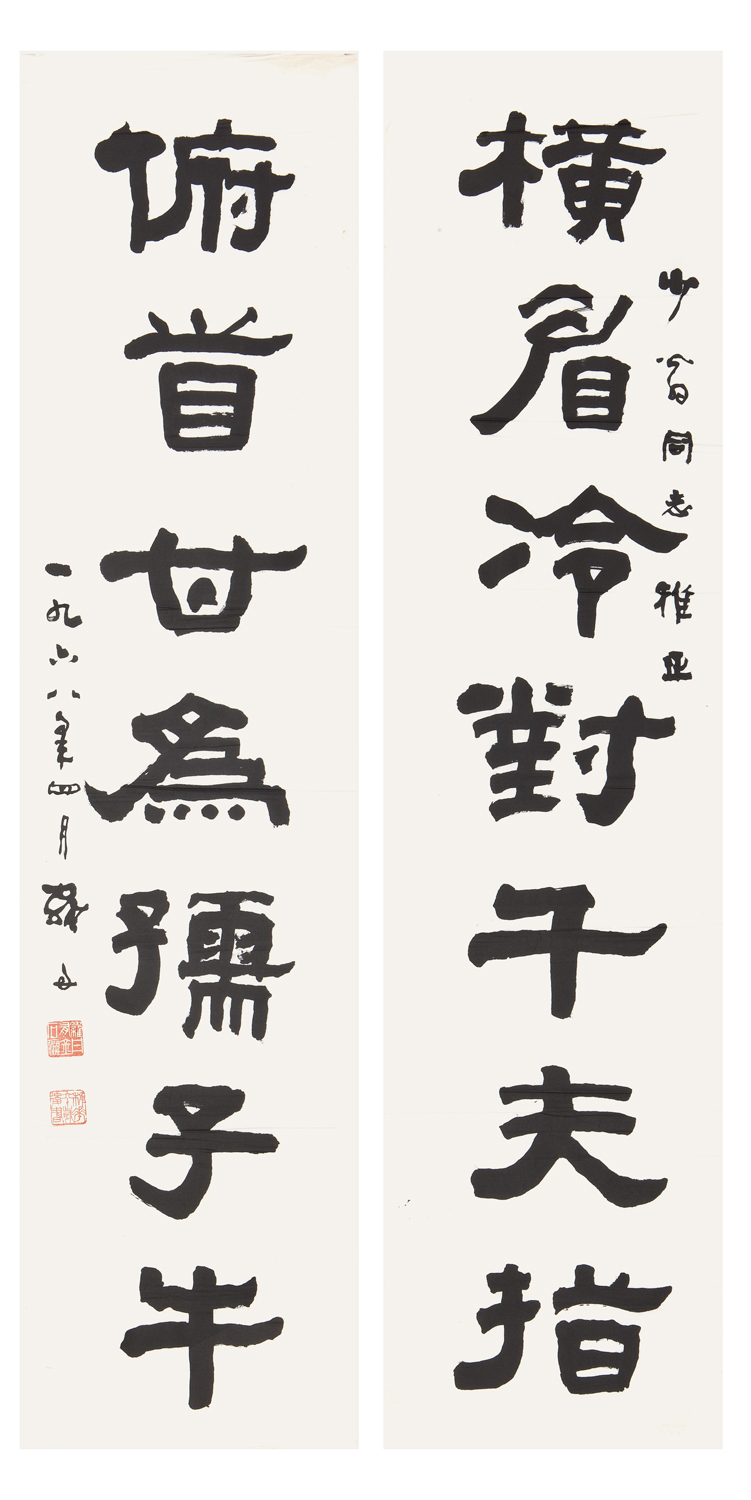 橫眉冷對千夫指
少翁同志雅正
俯首甘爲孺子牛
一九六八年四月羅丹